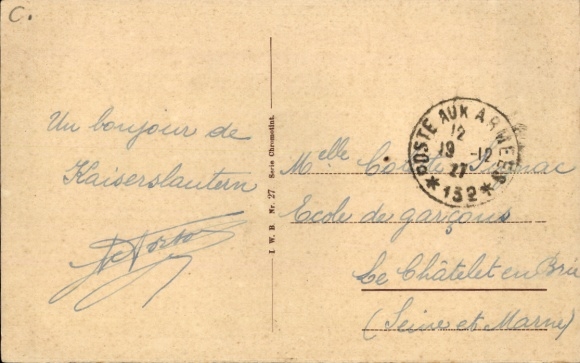 C.
Un bonjour de
Kaiserslautern
I. W. B. Nr. 27 Série Chromotint.
POSTE AUX ARMEES
12
19 -12
27
*132*
Melle
Ecole de garçons
Le Châtelet en Brie
(Seine et Marne)